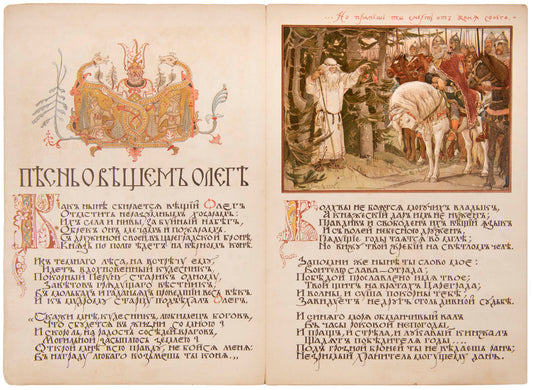 ПѢСНЬ О ВѢЩЕМЪ ОЛЕГѢ
Какъ нынѣ сбирается вѣщій Олегъ
Отмстить неразумнымъ хозарамъ:
Ихъ села и нивы, за буйный набѣгъ,
Обрекъ онъ мечамъ и пожарамъ.
Съ дружиной своей, въ цареградской бронѣ,
Князь по полю ѣдетъ на вѣрномъ конѣ.
Изъ темнаго лѣса, на встрѣчу ему,
Идетъ вдохновенный кудесникъ,
Покорный Перуну старикъ одному,
Завѣтовъ грядущаго вѣстникъ,
Въ мольбахъ и гаданьяхъ проведшій весь вѣкъ.
И къ мудрому старцу подъѣхалъ Олегъ.
«Скажи мнѣ, кудесникъ, любимецъ боговъ,
Что сбудется въ жизни со мною?
И скоро ль, на радость сосѣдей-враговъ,
Могильной засыплюсь землею?
Открой мнѣ всю правду, не бойся меня:
Въ награду любаго возьмешь ты коня.»
...Но примешь ты смерть отъ коня своего...
Волхвы не боятся могучихъ владыкъ,
А княжескій даръ имъ не нуженъ;
Правдивъ и свободенъ ихъ вѣщій языкъ
И съ волей небесною друженъ.
Грядущіе годы таятся во мглѣ;
Но вижу твой жребій на свѣтломъ челѣ.
Запомни же нынѣ ты слово мое:
Воителю слава — отрада;
Побѣдой прославлено имя твое;
Твой щитъ на вратахъ Цареграда;
И волны, и суша покорны тебѣ;
Завидуетъ недругъ столь дивной судьбѣ.
И синяго моря обманчивый валъ
Въ часы роковой непогоды,
И пращъ, и стрѣла, и лукавый кинжалъ
Щадятъ побѣдителя годы...
Подъ грозной броней ты не вѣдаешь ранъ;
Незримый хранитель могущему данъ.